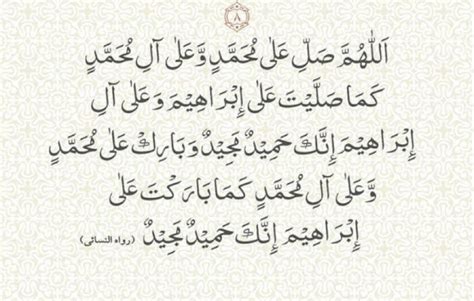 ٨
اَللّٰهُمَّ صَلِّ عَلٰى مُحَمَّدٍ وَّعَلٰى آلِ مُحَمَّدٍ
كَمَا صَلَّيْتَ عَلٰى إِبْرَاهِيْمَ وَعَلٰى آلِ
إِبْرَاهِيْمَ إِنَّكَ حَمِيْدٌ مَّجِيْدٌ وَبَارِكْ عَلٰى مُحَمَّدٍ
وَّعَلٰى آلِ مُحَمَّدٍ كَمَا بَارَكْتَ عَلٰى
إِبْرَاهِيْمَ إِنَّكَ حَمِيْدٌ مَّجِيْدٌ (رواه النسائی)